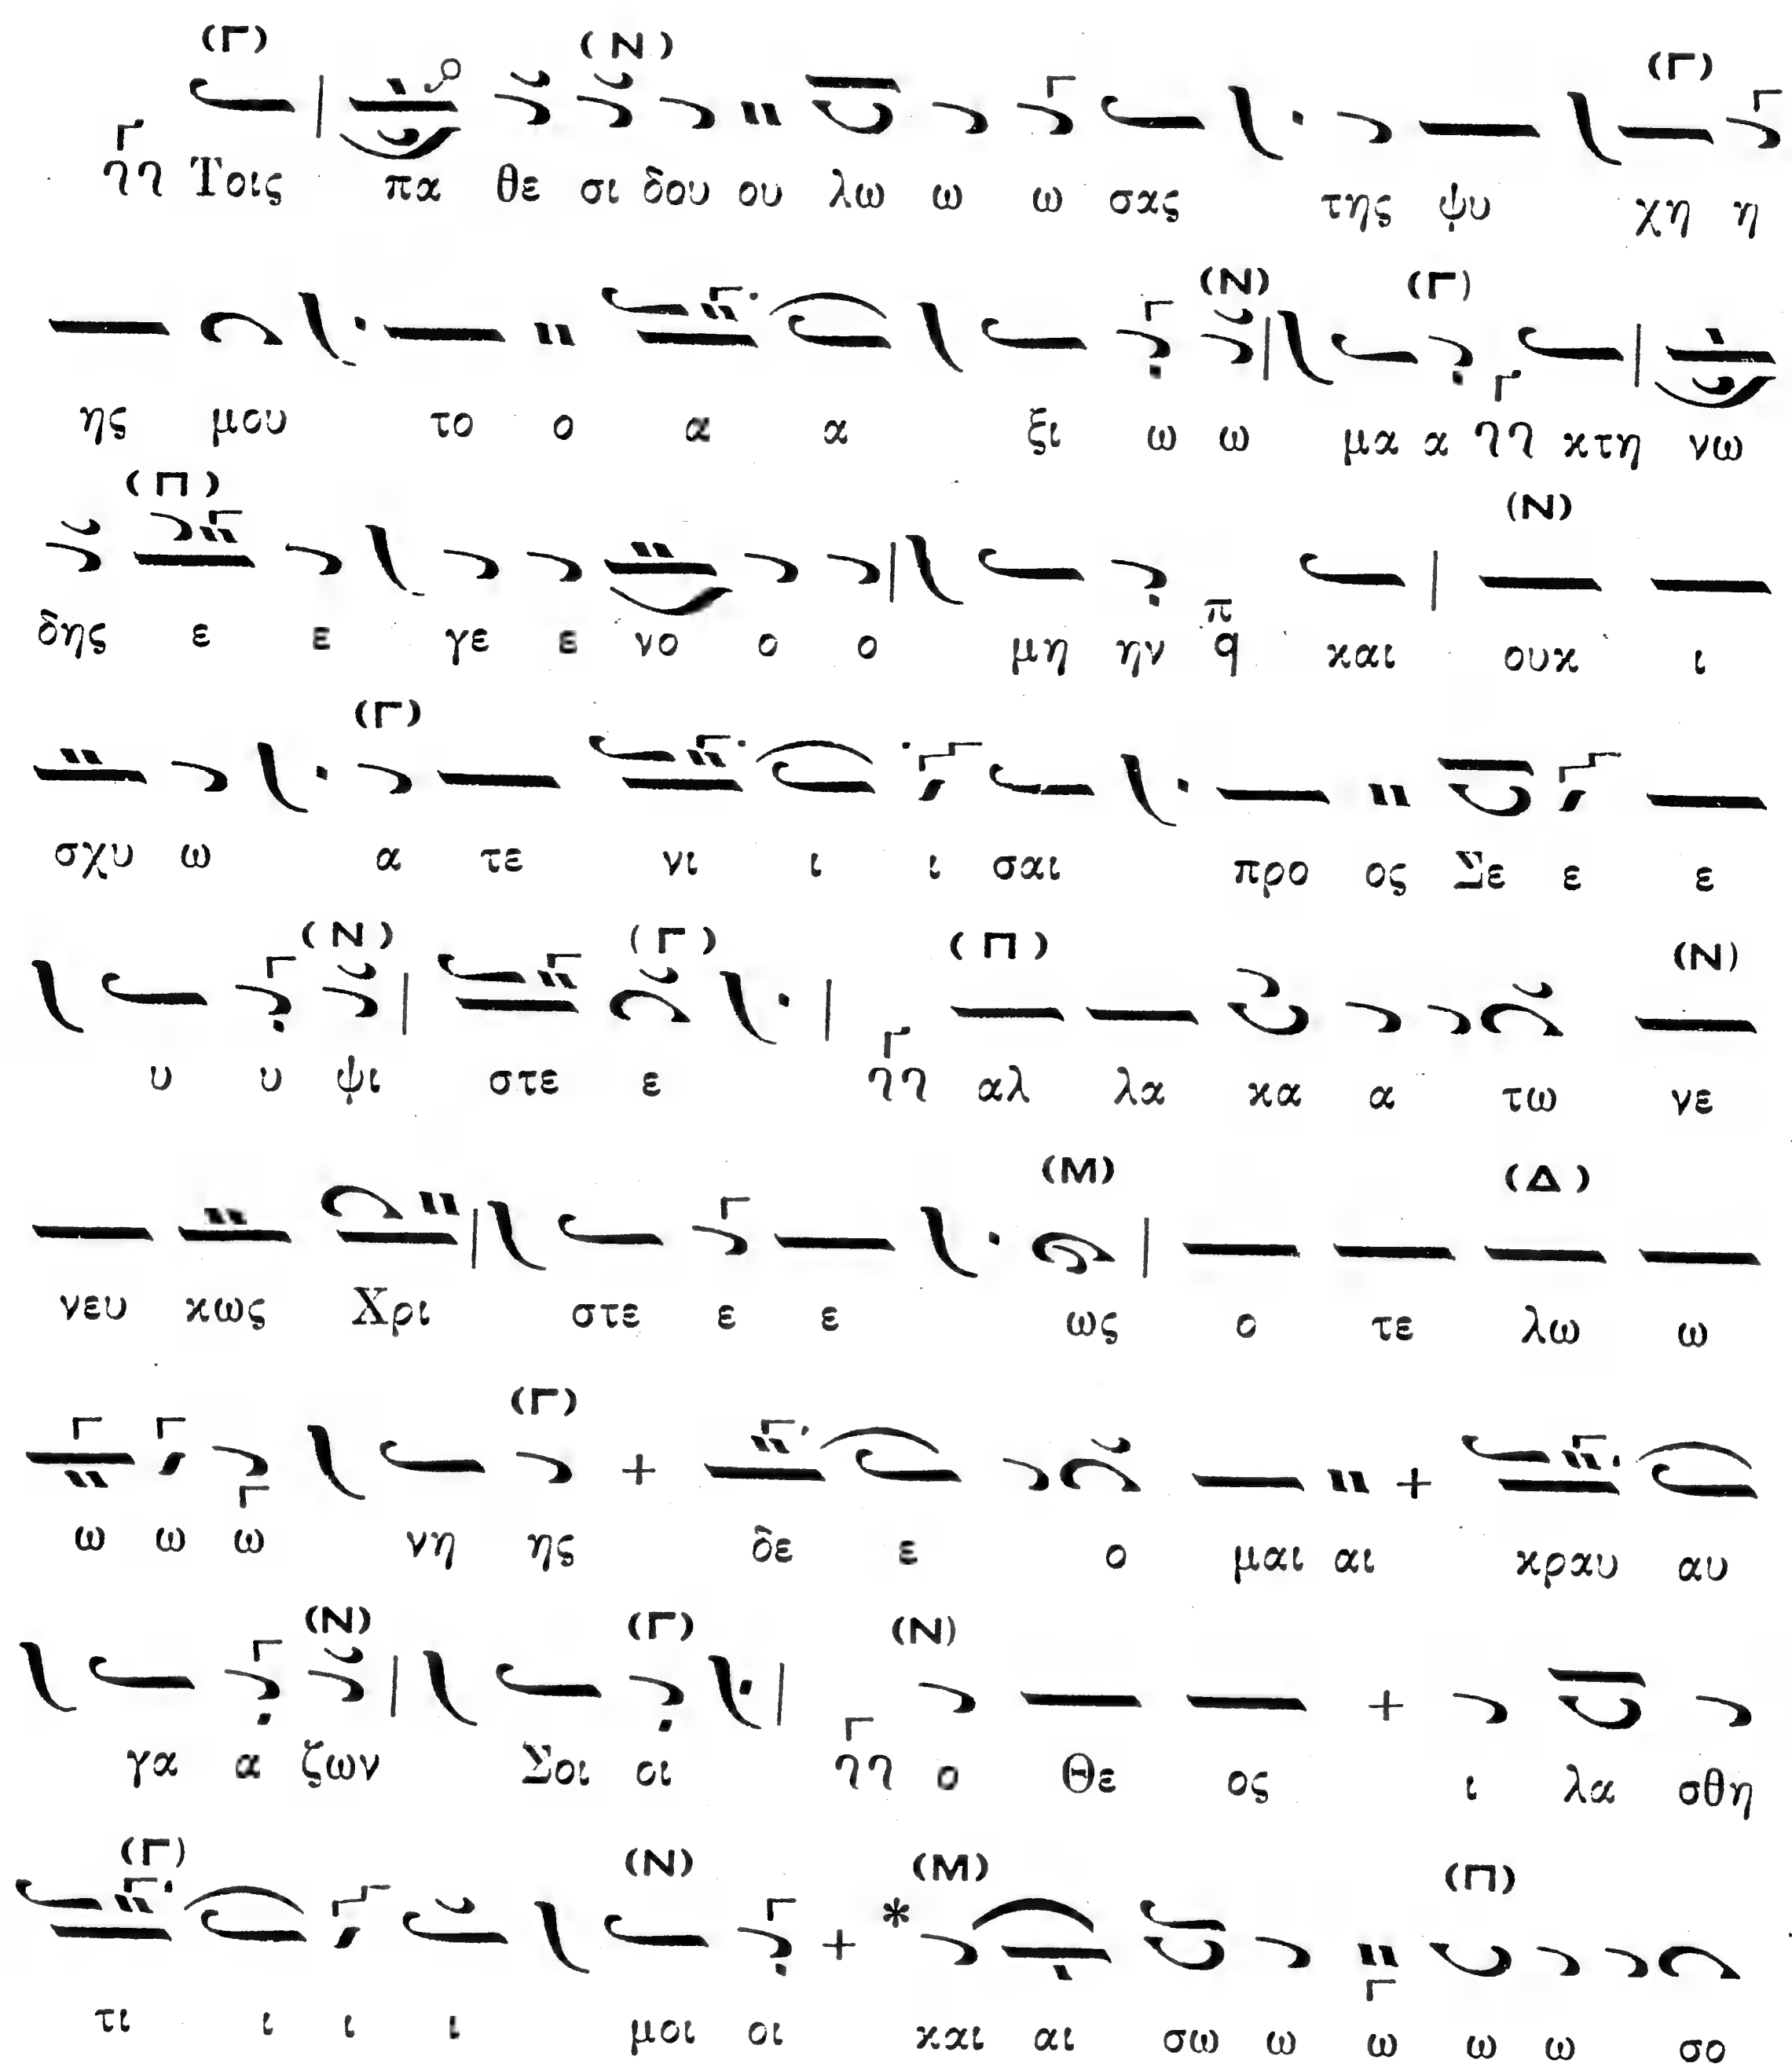 (Γ) (Ν) (Γ)
Τοις πα θε σι δου ου λω ω ω σας της ψυ χη η
(Ν) (Γ)
ης μου το ο α α ξι ω ω μα α κτη νω
(Π) (Ν)
δης ε ε γε ε νο ο ο μη ην π q και ουκ ι
(Γ)
σχυ ω α τε νι ι ι σαι προ ος Σε ε ε
(Ν) (Γ) (Π) (Ν)
υ υ ψι στε ε αλ λα κα α τω νε
(Μ) (Δ)
νευ κως Χρι στε ε ε ως ο τε λω ω
(Γ)
ω ω ω νη ης δε ε ο μαι αι κραυ αυ
(Ν) (Γ) (Ν)
γα α ζων Σοι οι ο Θε ος ι λα σθη
(Γ) (Ν) (Μ) (Π)
τι ι ι ι μοι οι * και αι σω ω ω ω ω σο